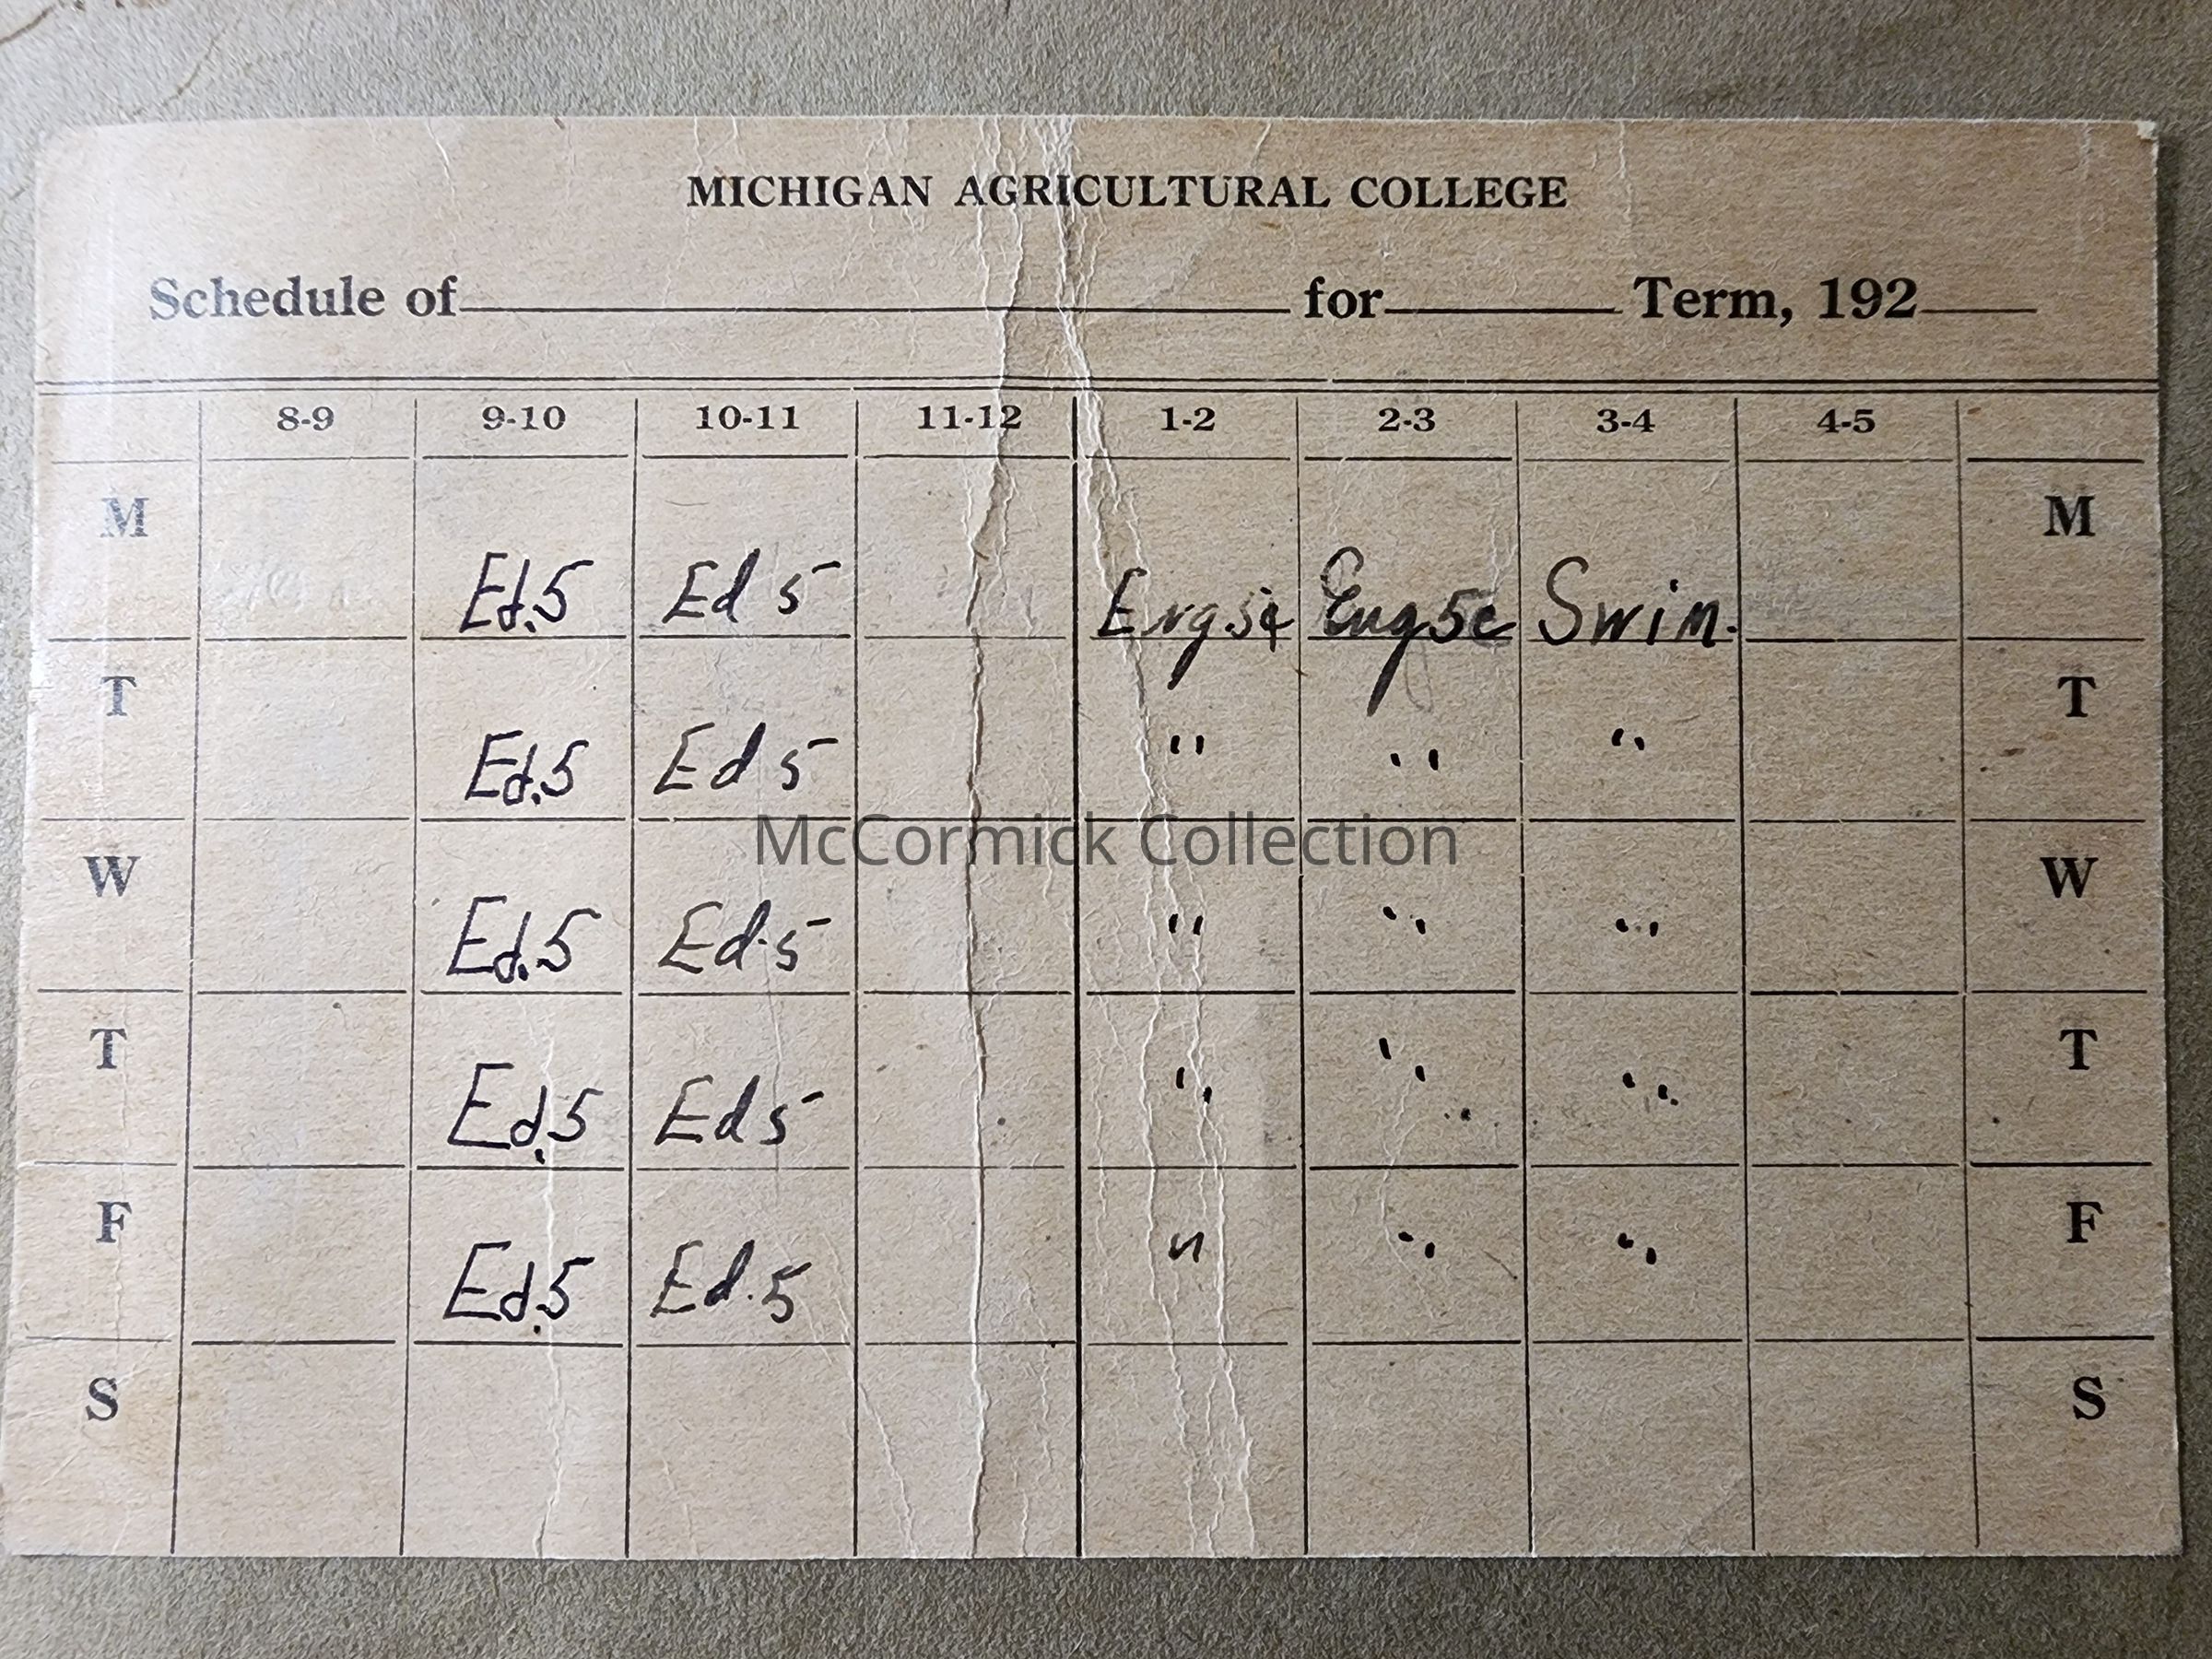 MICHIGAN AGRICULTURAL COLLEGE
Schedule of for Term, 192
8-9 9-10 10-11 11-12 1-2 2-3 3-4 4-5
M Ed.5 Ed 5 Eng 5c Eng 5c Swim. M
T Ed.5 Ed 5 " " " T
McCormick Collection
W Ed.5 Ed. 5 " " " W
T Ed.5 Ed 5 " " " T
F Ed.5 Ed. 5 " " " F
S S